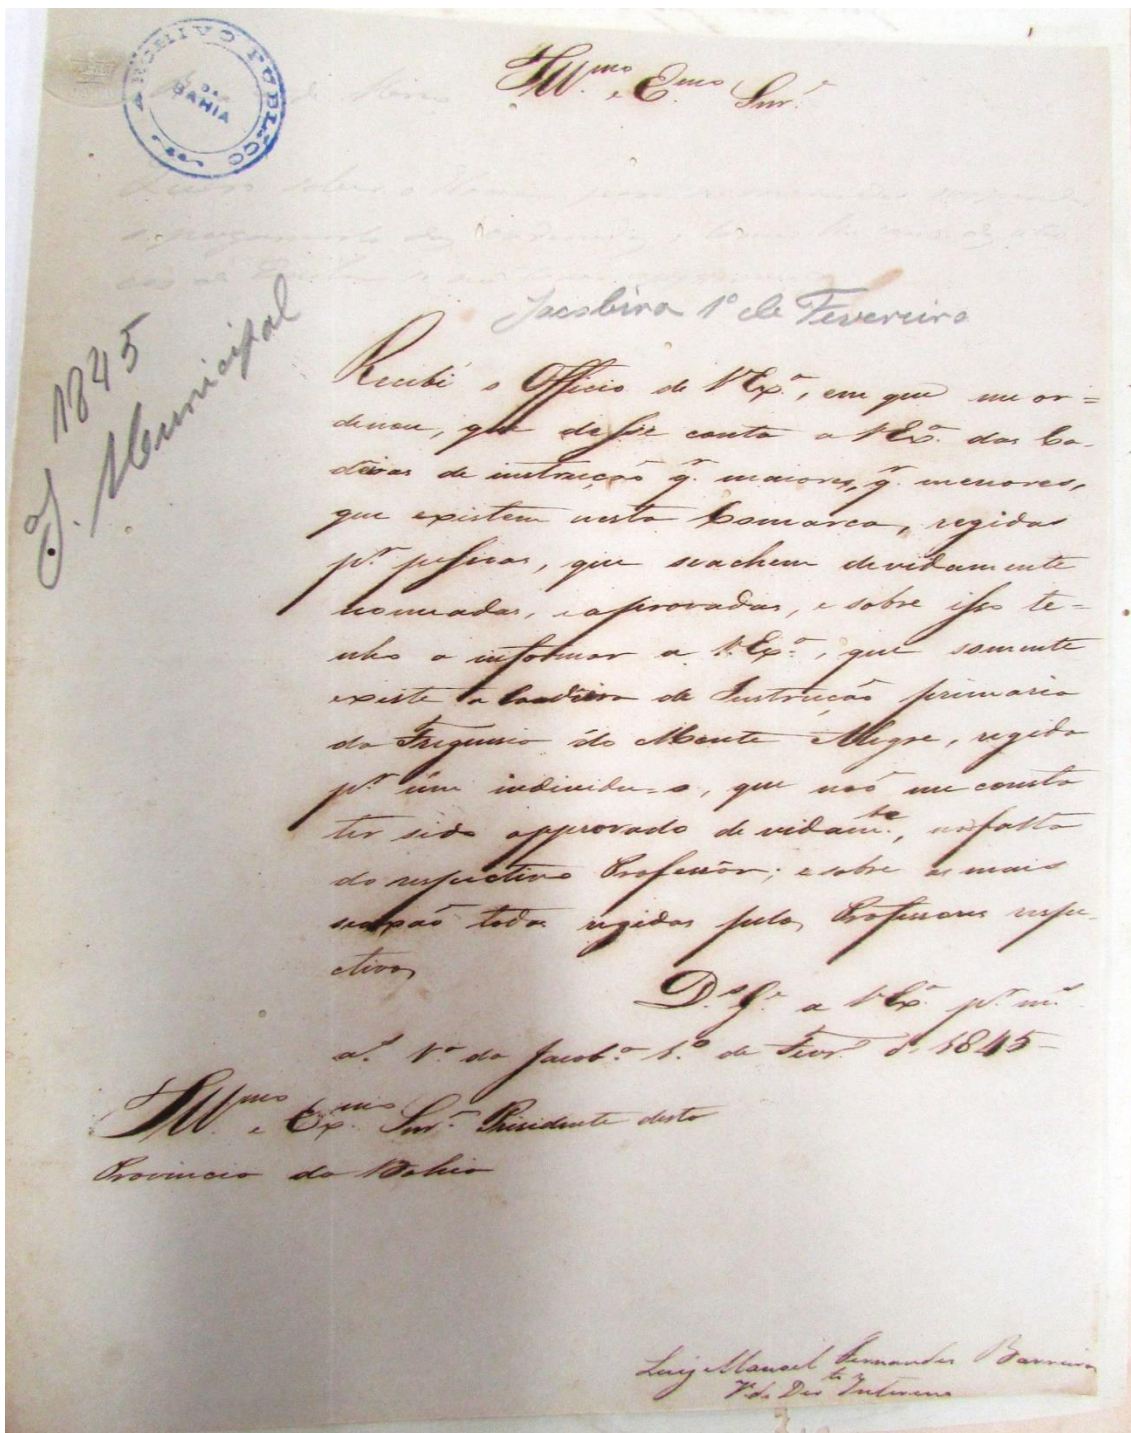 ARCHIVO PUBLICO
DA
BAHIA
Ill.mo e Ex.mo Snr.
Jacobina 1º de Fevereiro
1845
J. Municipal
Recibi o Officio de V Exª, em que me or=
denou, que désse conta a V Exª das Ca-
deiras de instrucção qr. maiores, qr. menores,
que existem nesta Comarca, regidas
pr. pessoas, que se achem devidamente
nomeadas, e aprovadas, e sobre isso te=
nho a informar a V. Exª, que somente
existe a Cadeira de Instrucção primaria
da Freguesia do Monte Alegre, regida
pr. úm individu=o, que não me consta
ter sido approvado devidamte., na falta
do respectivo Professôr; e sobre as mais
todas regidas pelos Professores respe-
ctivos
D.s G.e a V Exª pr. m.s
a.s Vª da Jacobª 1.º de Fevrº de 1845
Ill.mo e Ex.mo Snr. Presidente desta
Provincia da Bahia
Luiz Manoel Fernandes Barreiros
de Dirto Interino